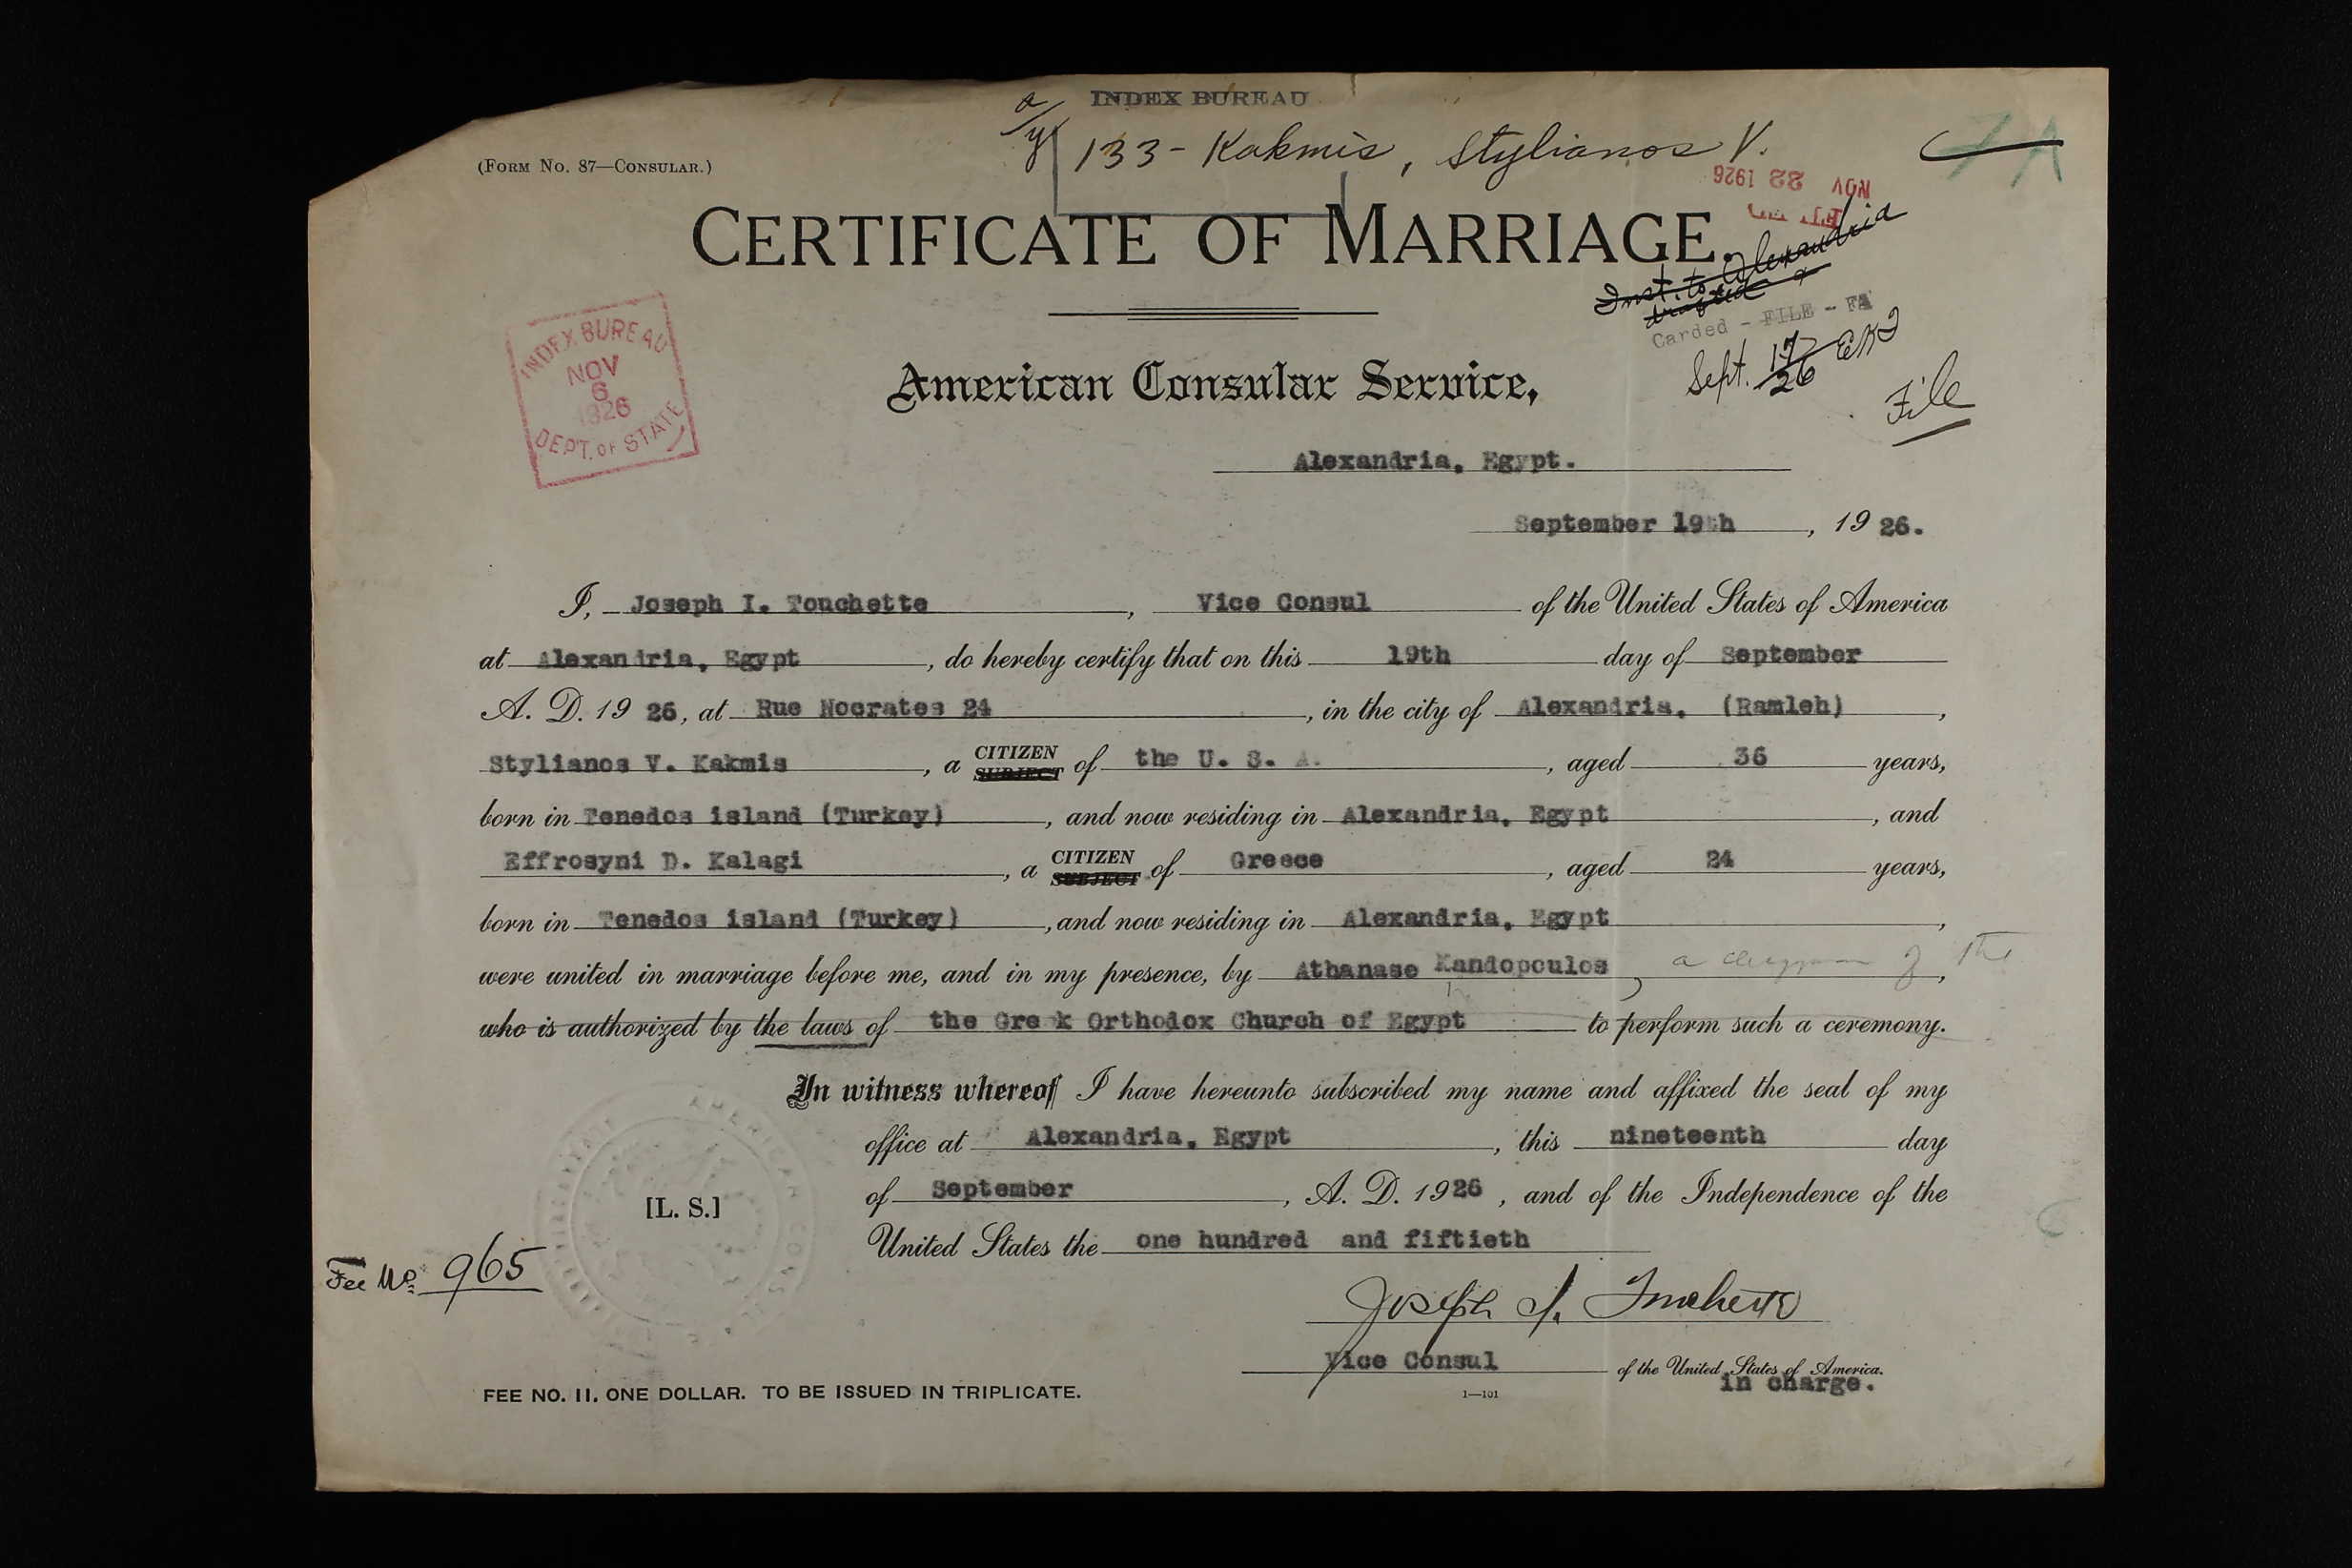 INDEX BUREAU
133 - Kakmis, Stylianos V.
(FORM No. 87—CONSULAR.)
NOV 22 1926
CERTIFICATE OF MARRIAGE.
Inst. to Alexandria
Carded - FILE - FA
Sept. 17/26
File
INDEX BUREAU
NOV
6
1926
DEPT. OF STATE
American Consular Service,
Alexandria, Egypt.
September 19th, 1926.
I, Joseph I. Touchette, Vice Consul of the United States of America
at Alexandria, Egypt, do hereby certify that on this 19th day of September
A. D. 1926, at Rue Nocrates 24, in the city of Alexandria, (Ramleh),
Stylianos V. Kakmis, a CITIZEN SUBJECT of the U. S. A., aged 36 years,
born in Tenedos island (Turkey), and now residing in Alexandria, Egypt, and
Effrosyni D. Kalagi, a CITIZEN SUBJECT of Greece, aged 24 years,
born in Tenedos island (Turkey), and now residing in Alexandria, Egypt,
were united in marriage before me, and in my presence, by Athanase Kandopoulos, a clergyman of the,
who is authorized by the laws of the Greek Orthodox Church of Egypt to perform such a ceremony.
In witness whereof I have hereunto subscribed my name and affixed the seal of my
office at Alexandria, Egypt, this nineteenth day
of September, A. D. 1926, and of the Independence of the
[L. S.]
United States the one hundred and fiftieth
Fee No. 965
Joseph I. Touchette
Vice Consul of the United States of America.
in charge.
FEE NO. 11. ONE DOLLAR. TO BE ISSUED IN TRIPLICATE.
1—101